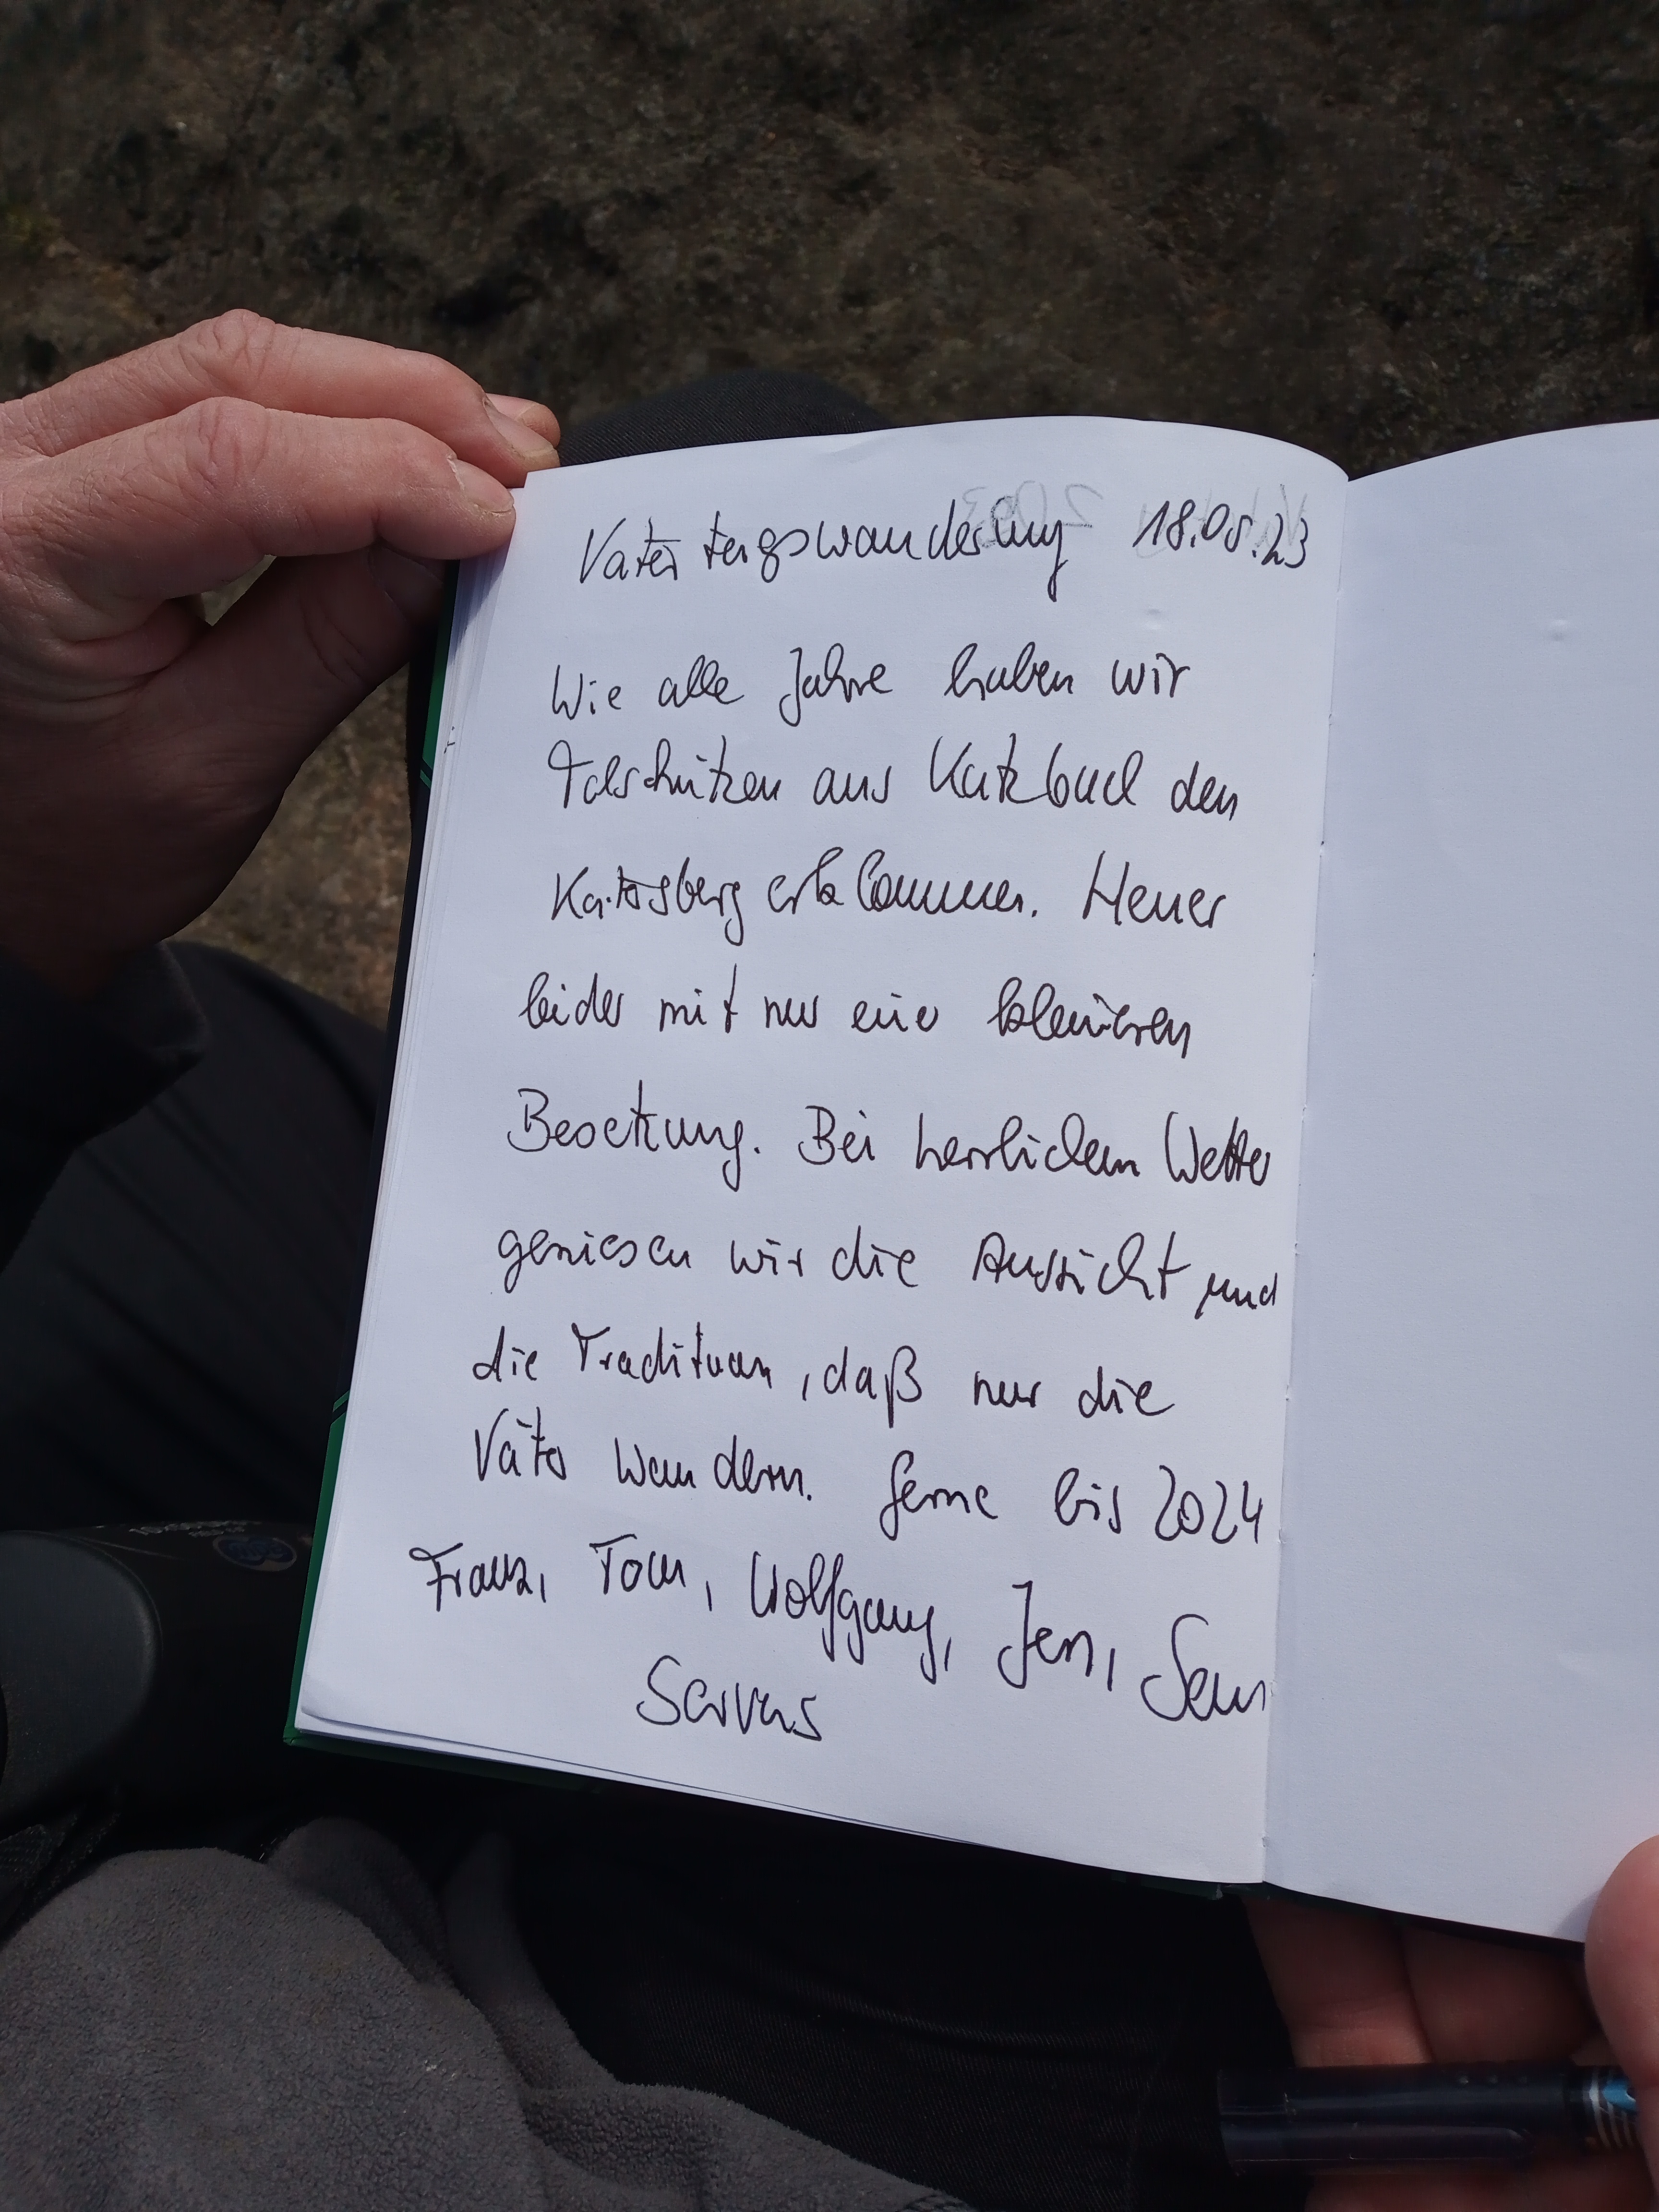 Vatertagswanderung 18.05.23
Wie alle Jahre haben wir
Talschützen aus Katzbach den
erklommen. Heuer
leider mit nur einer kleineren
Besetzung. Bei herrlichem Wetter
geniesen wir die Aussicht und
die Tradition, daß nur die
Väter wandern. Gerne bis 2024
Franz, Tom, Wolfgang, Jens,
Servus